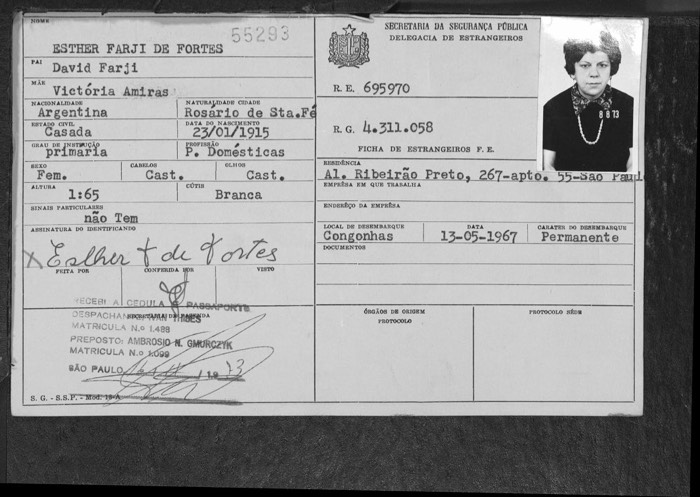 NOME
55293
ESTHER FARJI DE FORTES
PAI
David Farji
MÃE
Victória Amiras
NACIONALIDADE
Argentina
NATURALIDADE CIDADE
Rosário de Sta.Fé
ESTADO CIVIL
Casada
DATA DO NASCIMENTO
23/01/1915
GRAU DE INSTRUÇÃO
primaria
PROFISSÃO
P. Domésticas
SEXO
Fem.
CABELOS
Cast.
OLHOS
Cast.
ALTURA
1:65
CÚTIS
Branca
SINAIS PARTICULARES
não Tem
ASSINATURA DO IDENTIFICANDO
X Esther F de Fortes
FEITA POR
CONFERIDA POR
VISTO
RECEBI A CEDULA E PASSAPORTE
DESPACHAN
MATRICULA N.o 1.488
PREPOSTO: AMBROSIO N. GMURCZYK
MATRICULA N.o 1.099
SÃO PAULO / 19 73
S. G. - S.S.P. - Mod. 19-A
SECRETARIA DA SEGURANÇA PÚBLICA
DELEGACIA DE ESTRANGEIROS
R. E. 695970
R. G. 4.311.058
FICHA DE ESTRANGEIROS F. E.
8 8 73
RESIDÊNCIA
Al. Ribeirão Preto, 267-apto. 55-São Paul
EMPRÊSA EM QUE TRABALHA
ENDERÊÇO DA EMPRÊSA
LOCAL DE DESEMBARQUE
Congonhas
DATA
13-05-1967
CARATER DO DESEMBARQUE
Permanente
DOCUMENTOS
ÓRGÃOS DE ORIGEM
PROTOCOLO
PROTOCOLO SÉDE